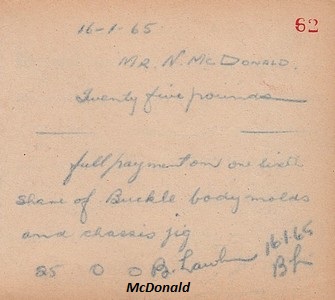 16-1-65
62
MR. N. MCDONALD.
Twenty five pounds
full payment on one sixth
share of Buckle body molds
and chassis jig
25 0 0 B. 16-1-65
McDonald